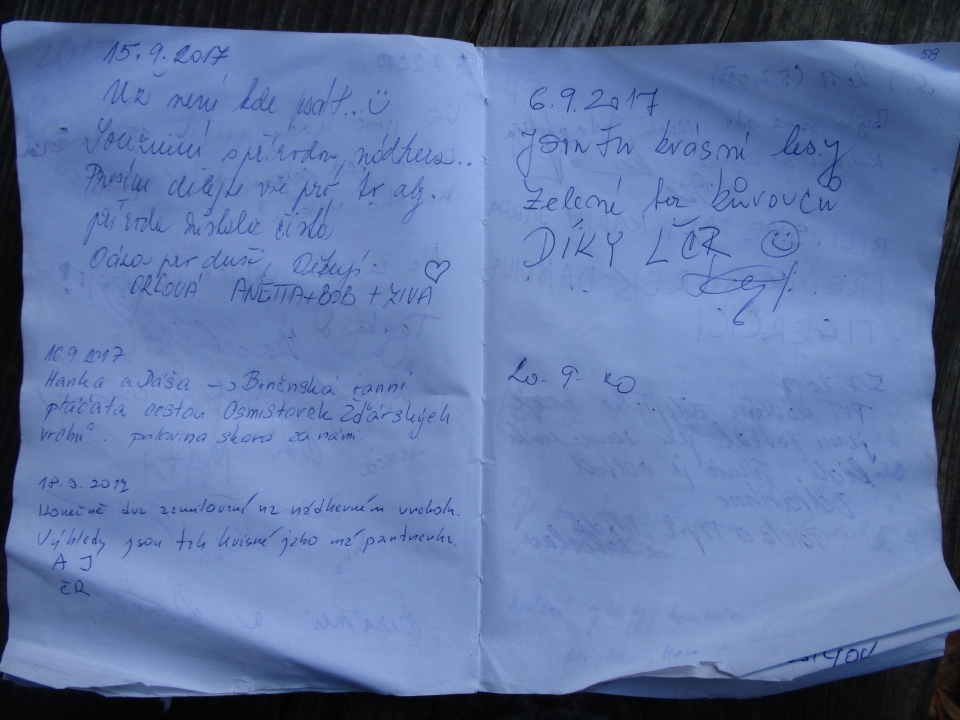 15.9.2017
Už není kde psát..
Souznění s přírodou, nádhera..
Prosím dělejte vše pro to, aby
příroda zůstala čistá
Oáza pro duši, Děkuji
ORLOVÁ ANETTA+BOB + ZIVA
16 9 2017
Hanka a Dáša → Brněnská ranní
ptáčata cestou Osmistovek Žďárských
vrchů.. polovina skoro za námi
18.9.2017
Konečně dva zamilovaní na nádherném vrcholu.
Výhledy jsou tak krásné jako má partnerka.
A J
ČR
58
6.9.2017
Jsou tu krásné lesy
zelené bez kůrovců
DÍKY LČR
20. 9. 20